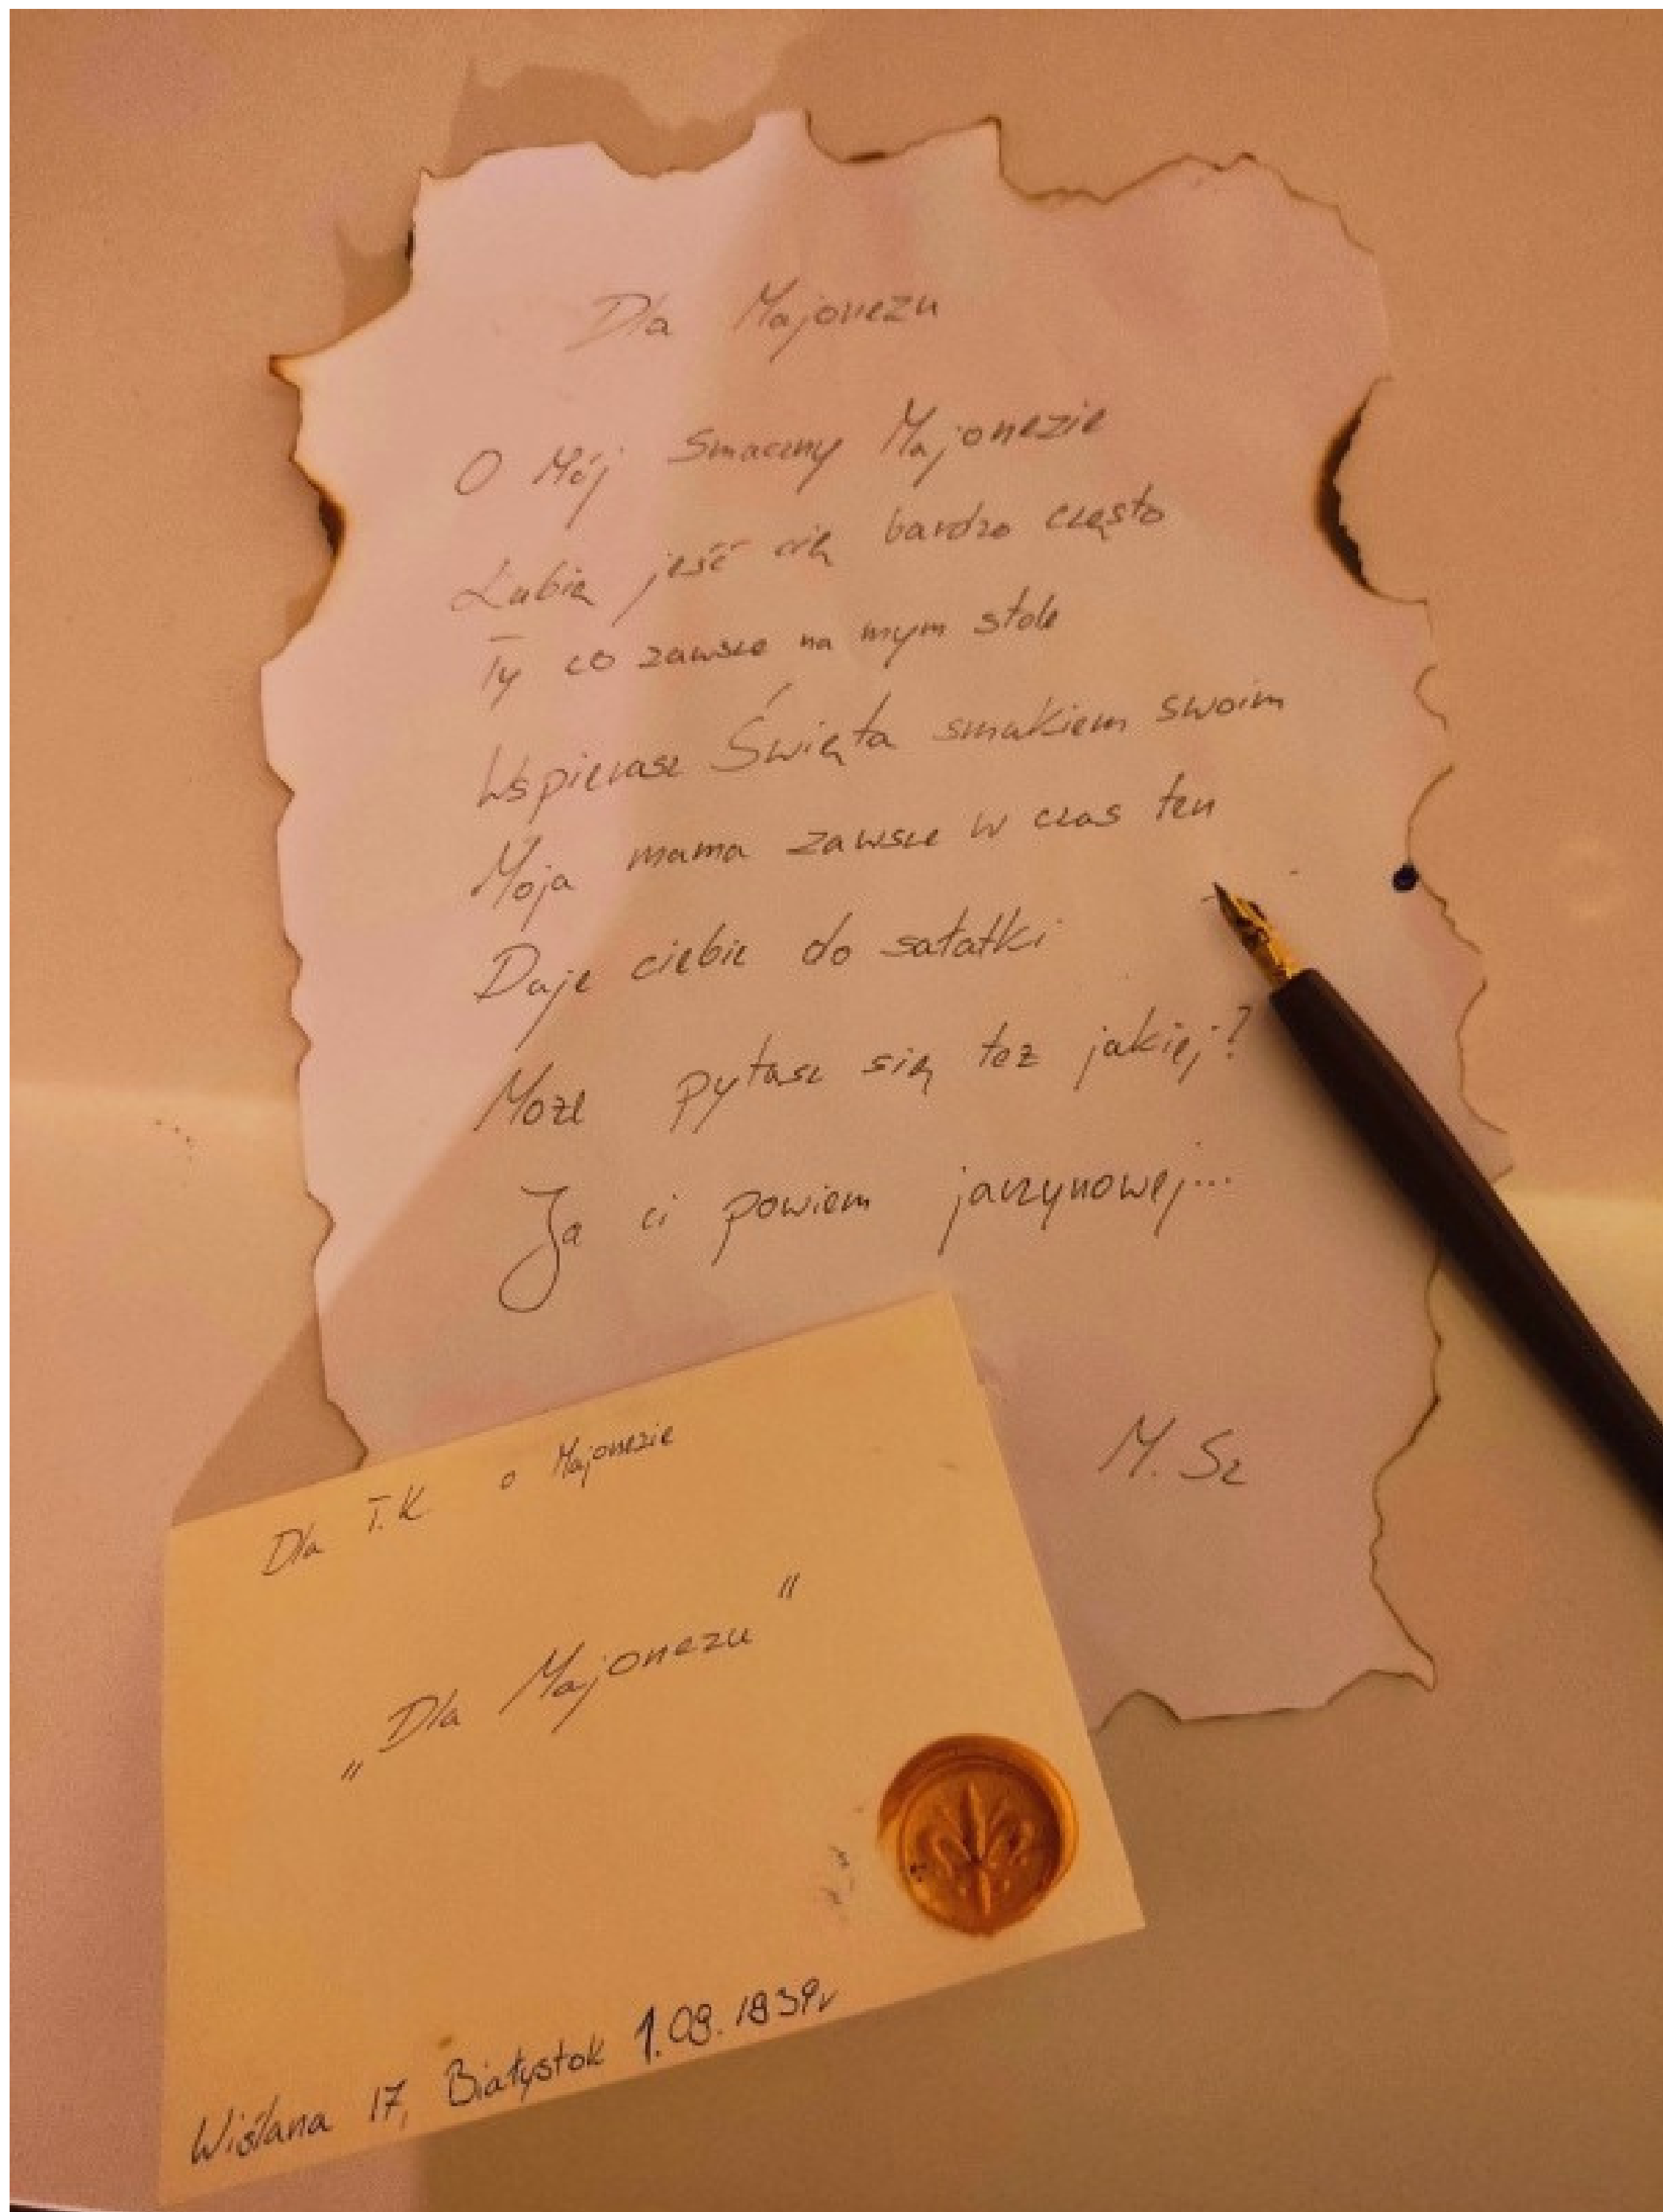 Dla Majonezu
O Mój Smaczny Majonezie
Lubię jeść cię bardzo często
Ty co zawsze na mym stole
Wspierasz Święta smakiem swoim
Moja mama zawsze w czas ten
Daje ciebie do sałatki
Może pytasz się też jakiej?
Ja ci powiem jarzynowej...
M. Sz
Dla T.K. o Majonezie
„Dla Majonezu"
Wiślana 17, Białystok 1.09.1839r